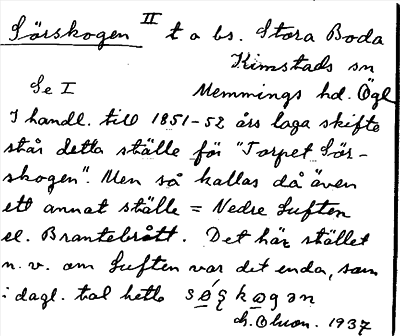 Sörskogen II t a bs. Stora Boda
Kimstads sn
Se I Memmings hd. Ögl
I handl. till 1851-52 års laga skifte
står detta ställe för "Torpet Sör-
skogen". Men så kallas då även
ett annat ställe = Nedre Luften
el. Brantebrått. Det här stället
n. v. om Luften var det enda, som
i dagl. tal hette
1937